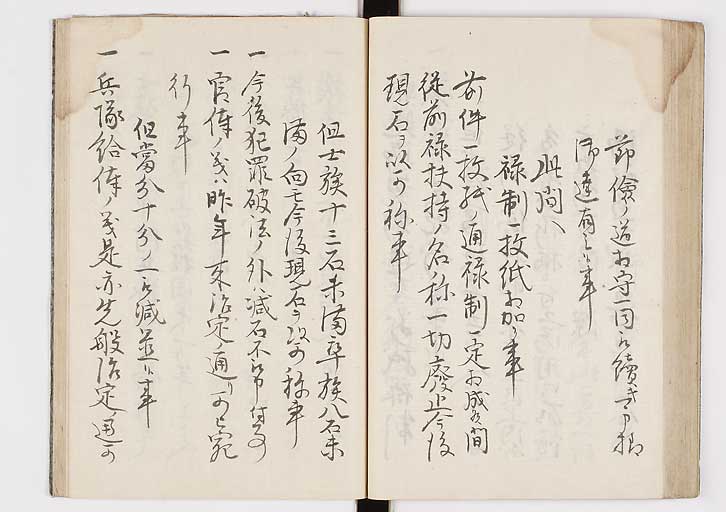 節倹ノ道相守一同永續方申掛
御達有之事
此間ヘ
禄制一枚紙相加ル事
前件一枚紙ノ通禄制一定相成候間
従前禄扶持ノ名称一切廃止今後
現石ヲ以可称事
但士族十三石未満卒族八石未
満ノ向モ今後現石ヲ以可称事
一 今後犯罪破法ノ外減石不被仰付事
一 官俸ノ義ハ昨年来治定ノ通リ可宛
行事
但當分十分ノ一被減候事
一 兵隊給俸ノ義是亦先般治定通可